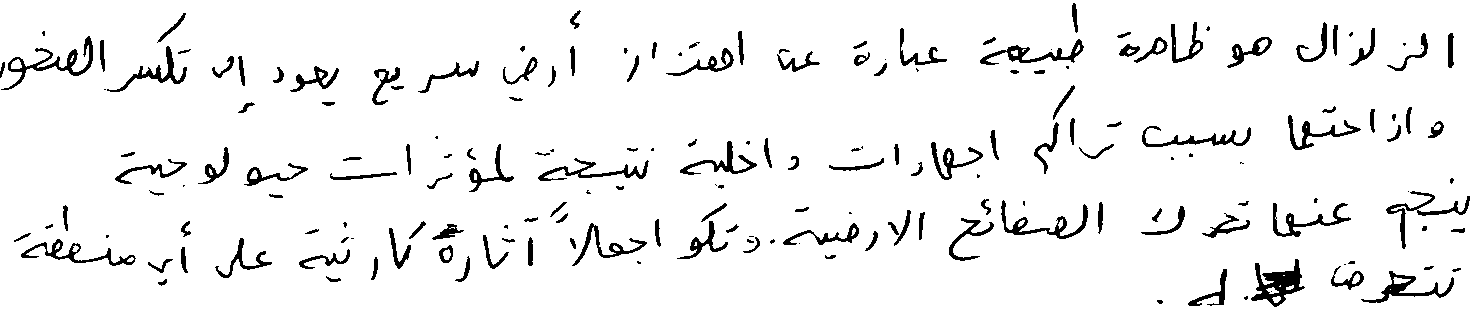 الزلزال هو ظاهرة طبيعية عبارة عن اهتزاز أرضي سريع يعود إلى تكسر الصخور
وازاحتها بسبب تراكم اجهادات داخلية نتيجة لمؤثرات جيولوجية
ينجم عنها تحرك الصفائح الارضية. وتكو اجمالاً آثاره كارثية على أي منطقة
تتعرض له.